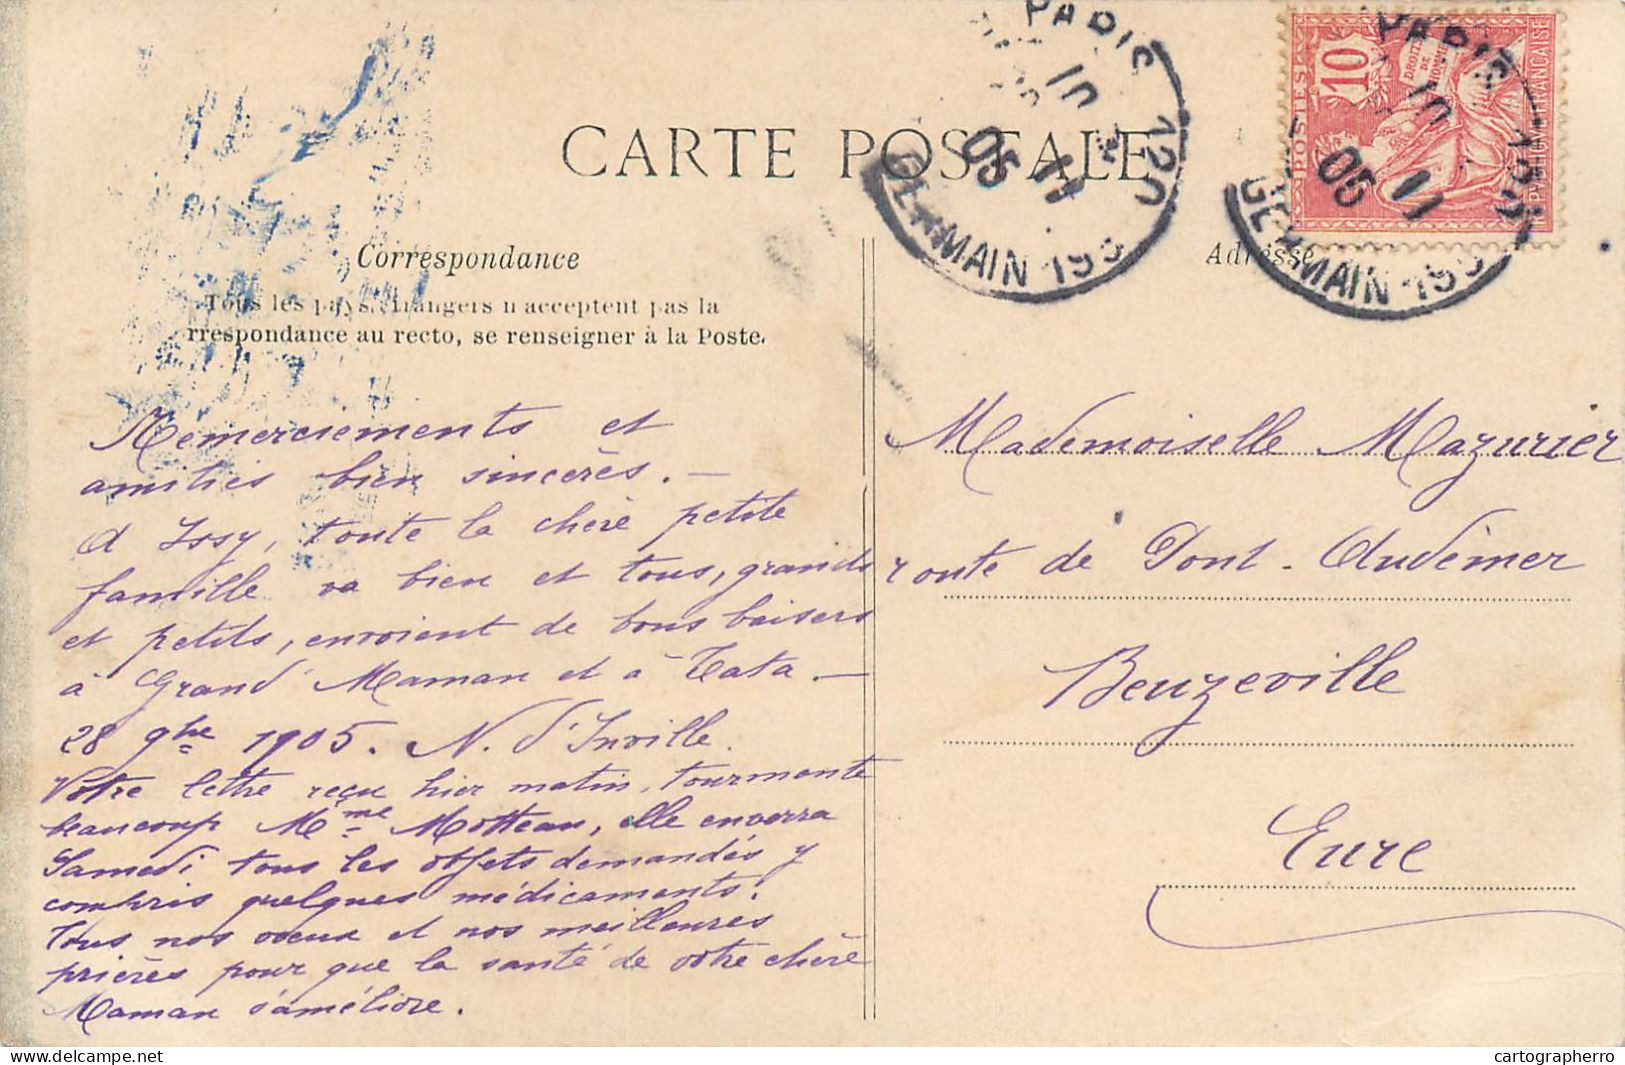 CARTE POSTALE
Correspondance
Tous les pays étrangers n'acceptent pas la
rrespondance au recto, se renseigner à la Poste.
Remerciements et
amitiés bien sincères. —
A Issy, toute la chère petite
famille va bien et tous, grands
et petits, envoient de bons baisers
à Grand' Maman et à Tata. —
28 9bre 1905. N. d'Inville.
Votre lettre reçu hier matin, tourmente
beaucoup Mme Motteau, elle enverra
Samedi tous les objets demandés y
compris quelques médicaments.
Tous nos vœux et nos meilleures
prières pour que la santé de votre chère
Maman s'améliore.
PARIS 120
11
05
GERMAIN 195
POSTES
10
DROITS
DE
L'HOMME
REPUBLIQUE FRANÇAISE
PARIS 120
11
05
GERMAIN 195
Adresse
Mademoiselle Mazurier
route de Pont-Audemer
Beuzeville
Eure
delcampe.net
cartographerro